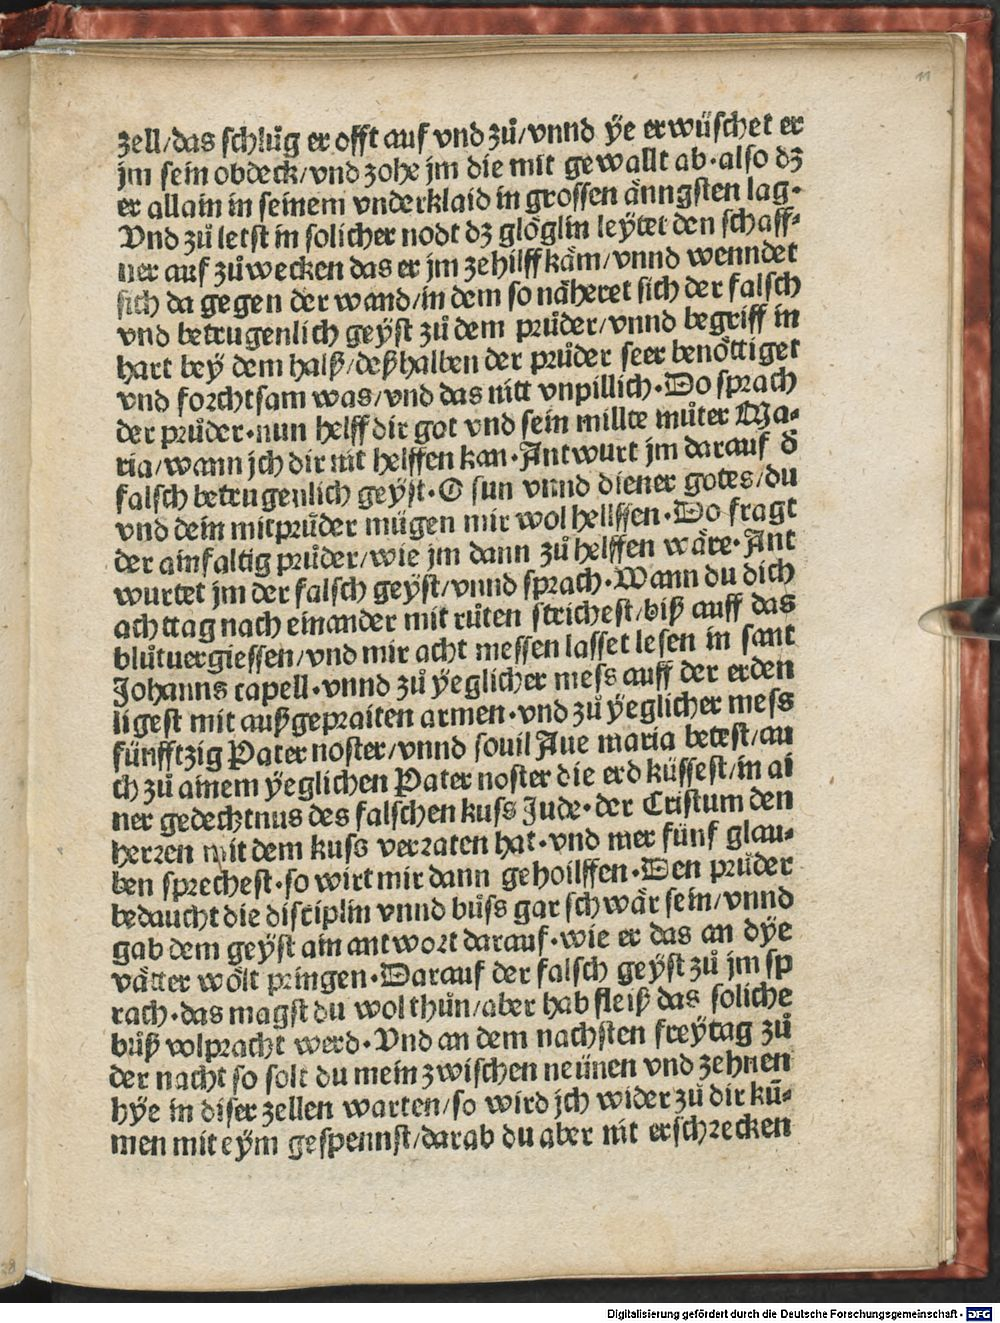 11
zell/das schlůg er offt auf vnd zů/vnnd ÿe erwüschet er
jm sein obdeck/vnd zohe jm die mit gewallt ab·also dʒ
er allain in seinem vnderklaid in grossen änngsten lag·
Vnd zů letst in solicher nodt dʒ glöglin leÿtet den schaff⸗
ner auf zůwecken das er jm zehilff käm/vnnd wenndet
sich da gegen der wand/in dem so näheret sich der falsch
vnd betrugenlich geÿst zů dem průder/vnnd begriff in
hart beÿ dem halß/deßhalben der průder seer benöttiget
vnd forchtsam was/vnd das nitt vnpillich·Do sprach
der průder·nun helff dir got vnd sein millte můter Ma⸗
ria/wann jch dir nit helffen kan·Antwurt jm darauf d̄
falsch betrugenlich geÿst·O sun vnnd diener gotes/du
vnd dein mitprůder mügen mir wol hellffen·Do fragt
der ainfaltig průder/wie jm dann zů helffen wäre·Ant
wurtet jm der falsch geÿst/vnnd sprach·Wann du dich
acht tag nach einander mit růten strichest/biß auff das
blůtuergiessen/vnd mir acht messen lasset lesen in sant
Johanns capell·vnnd zů ÿeglicher mess auff der erden
ligest mit außgepraiten armen·vnd zů ÿeglicher mess
fünfftzig Pater noster/vnnd souil Aue maria betest/au
ch zů ainem ÿeglichen Pater noster die erd küssest/in ai
ner gedechtnus des falschen kuss Jude·der Cristum den
herren mit dem kuss verraten hat·vnd mer fünf glau⸗
ben sprechest·so wirt mir dann gehoilffen·Den průder
bedaucht die disciplin vnnd bůss gar schwär sein/vnnd
gab dem geÿst ain antwort darauf·wie er das an dÿe
vätter wölt pringen·Darauf der falsch geÿst zů jm sp
rach·das magst du wol thůn/aber hab fleiß das soliche
bůß volpracht werd·Vnd an dem nachsten freÿtag zů
der nacht so solt du mein zwischen neünen vnd zehnen
hÿe in diser zellen warten/so wird jch wider zů dir kū⸗
men mit eÿm gespennst/darab du aber nit erschrecken
Digitalisierung gefördert durch die Deutsche Forschungsgemeinschaft - DFG